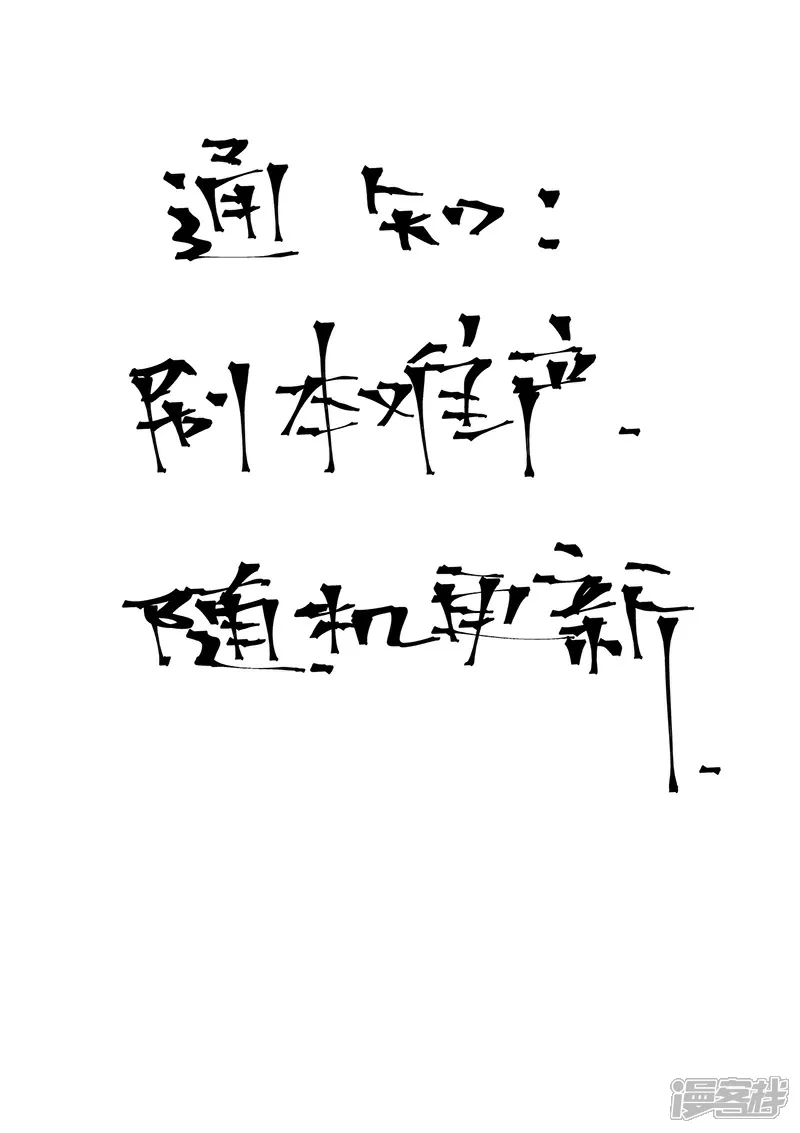 通知:
剧本难产.
随机更新.
漫客栈